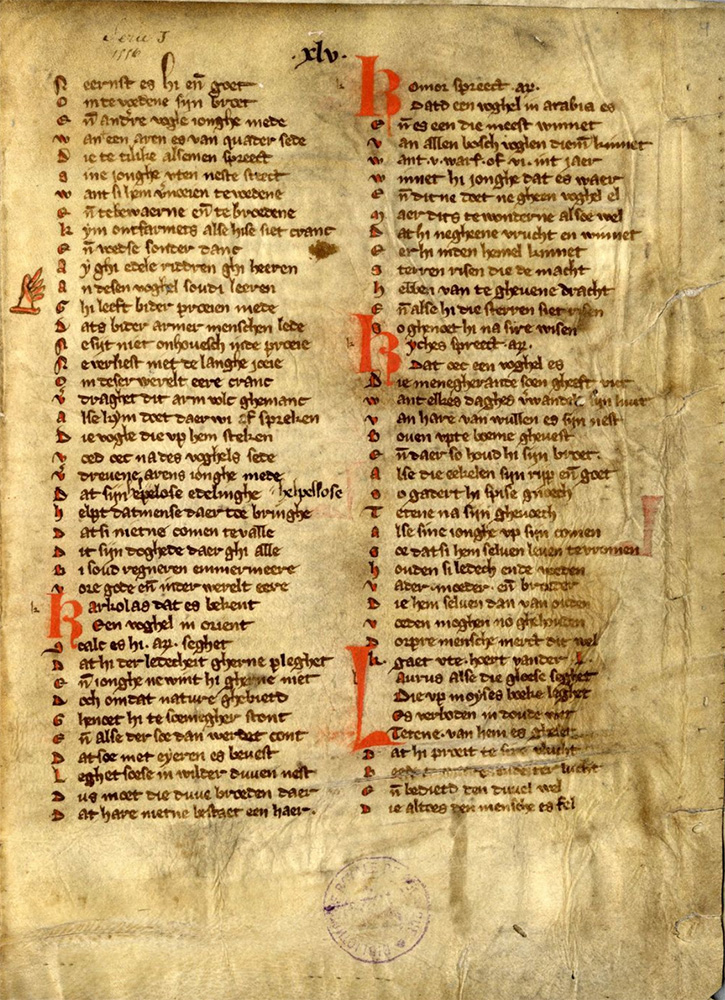 ·xlv·
N eernst es hi en̄ goet
O m te voedene sijn broet
E n̄ andre vogle ionghe mede
W an een aren es van quader sede
D ie te tilike alsemen spreect
S ine ionghe uten neste steect
W ant si hem vernoeien te voedene
E n̄ te bewaerne en̄ te broedene
K ym ontfarmers alse hise siet cranc
E n̄ voedse sonder danc
A y ghi edele riddren ghi heeren
A n desen voghel soudi leeren
G hi leeft bider proeien mede
D ats bider armer menschen lede
N e sijt niet onhouesch in de proeie
N e verliest niet de langhe ioeie
O m deser werelt eere cranc
V draghet dit arm volc ghemanc
A lse kym doet daer wi of spreken
D ie vogle die up hem steken
V oed oec na des voghels sede
V dreuene arens ionghe mede
D at sijn hulpelose edelinghe helpelose
H elpt datmense daer toe bringhe
D at si niet ne comen te valle
D it sijn doghede daer ghi alle
B i soud regneren emmermeere
V ore gode en̄ in der werelt eere
K arkolas dat es bekent
Een voghel in orient
S oalc es hi· ar̄· seghet
D at hi der ledecheit gherne pleghet
E n̄ ionghe ne wint hi gherne niet
D och omdat nature ghebiet
G henoet hi te soemegher stont
E n̄ alse der soe dan werdet cont
D at soe met eyeren es bevest
L eghet soese in wilder duven nest
D us moet die duve broeden daer
D at hare niet ne bestaet een haer·
K omor spreect· ar̄·
Dats een voghel in arabia es
E n̄ es een die meest winnet
V an allen bosch voglen diemen kinnet
W ant· v· warf· of· vi· int iaer
W innet hi ionghe dat es waer
E n̄ dit ne doet ne gheen voghel el
M aer dits te wonderne also wel
D at hi negheene vrucht en winnet
E er hi inden hemel kinnet
S terren risen die de macht
H ebben van te gheuene dracht
E n̄ alse hi die sterren siet risen
S o ghenoet hi na sire wisen
K yches spreect· ar̄·
Dat oec een voghel es
D ie menegherande soen gheeft
W ant elkes daghes verwandelt sijn luut
V an hare van wullen es sijn nest
B ouen upte boeme gheuest
E n̄ daer so houd hi sijn broet·
A lse die eekelen sijn rijp en̄ goet
S o gadert hi spise ghenoech
T etene na sijn gheuoech
A lse sine ionghe up sijn comen
S oe dat si hem seluen leuen te vromen
H ouden si ledech ende voeden
V ader· moeder· en̄ broeder
D ie hem seluen dan van ouden
V oeden moghen no ghehouden
D orpre mensche merct dit wel
K· gaet ute· heert vander L·
Laurus Alse die gloese seghet
Die up moyses boeke leghet
Es verboden in doude wet
Tetene· van hem es gheset
D at hi proeit te sire vlucht
E n̄ bediedt den duuel wel
D ie altoes den mensche es fel